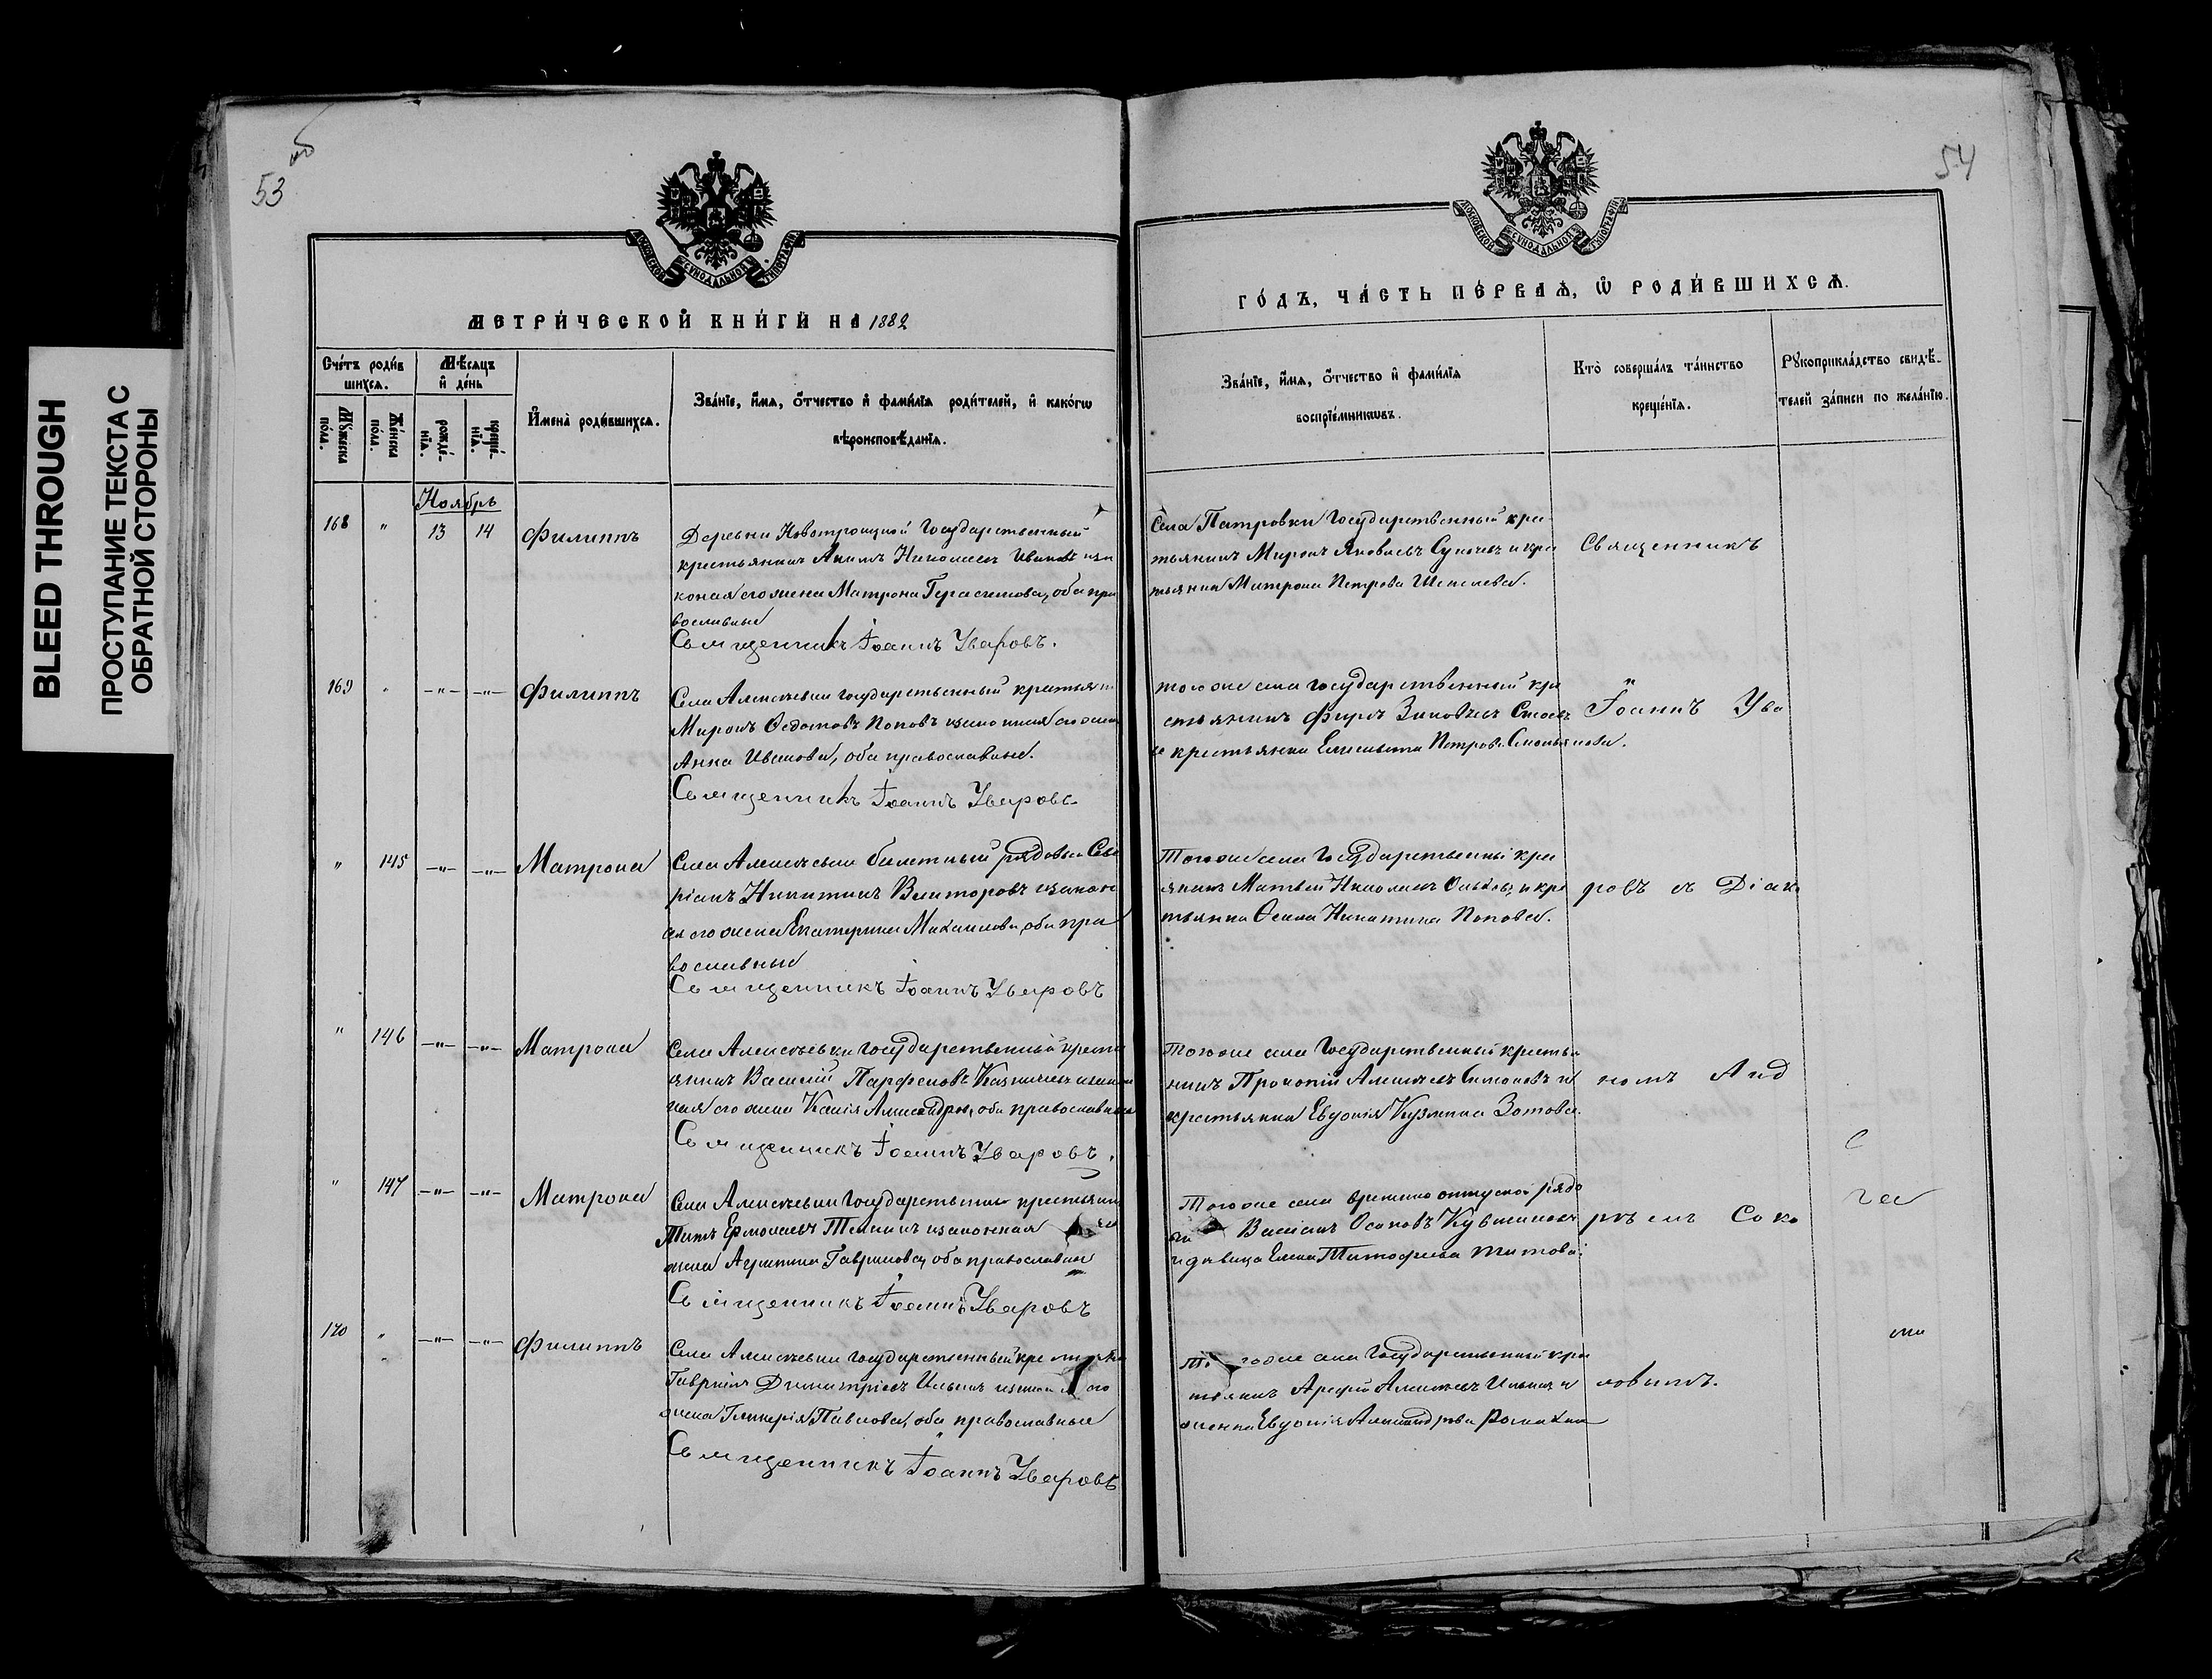 BLEED THROUGH
ПРОСТУПАНИЕ ТЕКСТА С
ОБРАТНОЙ СТОРОНЫ
53
об
МОСКОВСКОЙ СѴНОДАЛЬНОЙ ТѴПОГРАФІИ
МЕТРИ́ЧЕСКОЙ КНИ́ГИ НА 1882
Счéтъ роди́в
шихсѧ.
Мѣ́сѧцъ
и҆ дéнь
Мꙋ́жеска
по́ла.
Жéнска
по́ла.
рождé-
нїѧ.
крещé-
нїѧ.
И҆мена̀ роди́вшихсѧ.
Звáнїе, и҆́мѧ, ѻ҆́тчество и҆ фами́лїѧ роди́телей, и҆ какóгѡ
вѣроисповѣ́данїѧ.
Ноябрь
168 " 13 14 Филиппъ
Деревни Новотроицкой Государственный
крестьянинъ Акимъ Николаевъ Ивановъ и за
коная его жена Матрона Герасимова, оба пра
вославные
Священникъ Іоаннъ Уваровъ.
169 " -"- -"- Филиппъ
Села Алексѣевки государственный крестьянин
Миронъ Ѳедотовъ Поповъ и законная его жена
Анна Иванова, оба православные.
Священникъ Іоаннъ Уваровъ
" 145 -"- -"- Матрона
Села Алексѣевки билетный рядовой Све
ріанъ Никитинъ Викторовъ и закон
ая его жена Екатерина Михаилова, оба пра
вославные
Священникъ Іоаннъ Уваровъ
" 146 -"- -"- Матрона
Села Алексѣевки государственный крестья
янинъ Василій Парфеновъ
ная его жена Ксенія Александрова, оба православные
Священникъ Іоаннъ Уваровъ.
" 147 -"- -"- Матрона
Села Алексѣевки государственный крестьянин
Титъ Ермолаевъ и законная
жена Агрипина Гаврилова, оба православные
Священникъ Іоаннъ Уваровъ
170 " -"- -"- Филиппъ
Села Алексѣевки государственный крестьянин
Гавріилъ Димитріевъ Ильинъ и законная его
жена Гликерія Павлова, оба православные
Священникъ Іоаннъ Уваровъ
54
МОСКОВСКОЙ СѴНОДАЛЬНОЙ ТѴПОГРАФІИ
ГÓДЪ, ЧÁСТЬ ПÉРВАѦ, Ѡ҆ РОДИ́ВШИХСѦ.
Звáнїе, и҆́мѧ, ѻ҆́тчество и҆ фами́лїѧ
воспрїéмникѡвъ.
Кто̀ совершáлъ тáинство
крещéнїѧ.
Рꙋкоприклáдство свидѣ́-
телей зáписи по желáнїю.
Села Петровки Государственный кре
стьянинъ Миронъ Яковлевъ и кре
стьянка Матрона Петрова Шепелева.
Священникъ
того же села государственный кре
стьянинъ Фирсъ Зиновьевъ
и крестьянка Елисавета Петрова
Іоаннъ Ува
Того же села Государственный кре
янинъ Матвей Николаевъ и кре
стьянка Ѳекла Никитина Попова.
ровъ съ Діако
Того же села Государственный крестья
нинъ Прокопій Алексѣевъ Симоновъ и
крестьянка Евдокія Кузмина Зотова.
номъ Анд
Того же села временно отпускной рядо
вой Василій Осиповъ
и дѣвица Елена Тимофеева Титова.
реемъ Соко
Того же села Государственный кре
стьянинъ Арефій Алексѣевъ Ильинъ и
женка Евдокія Александрова
ловымъ.
С
га